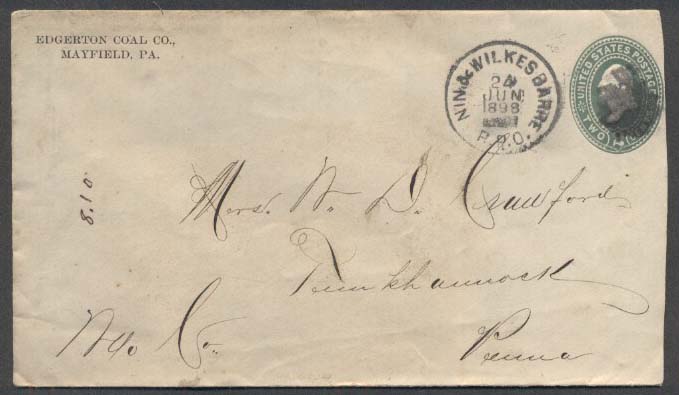 EDGERTON COAL CO.,
MAYFIELD, PA.
NIN. & WILKES BARRE
24
JUN
1898
R.P.O.
UNITED STATES POSTAGE
TWO
8.10
Mrs. W. D. Crawford
Tunkhannock
Wyo Co.
Penna